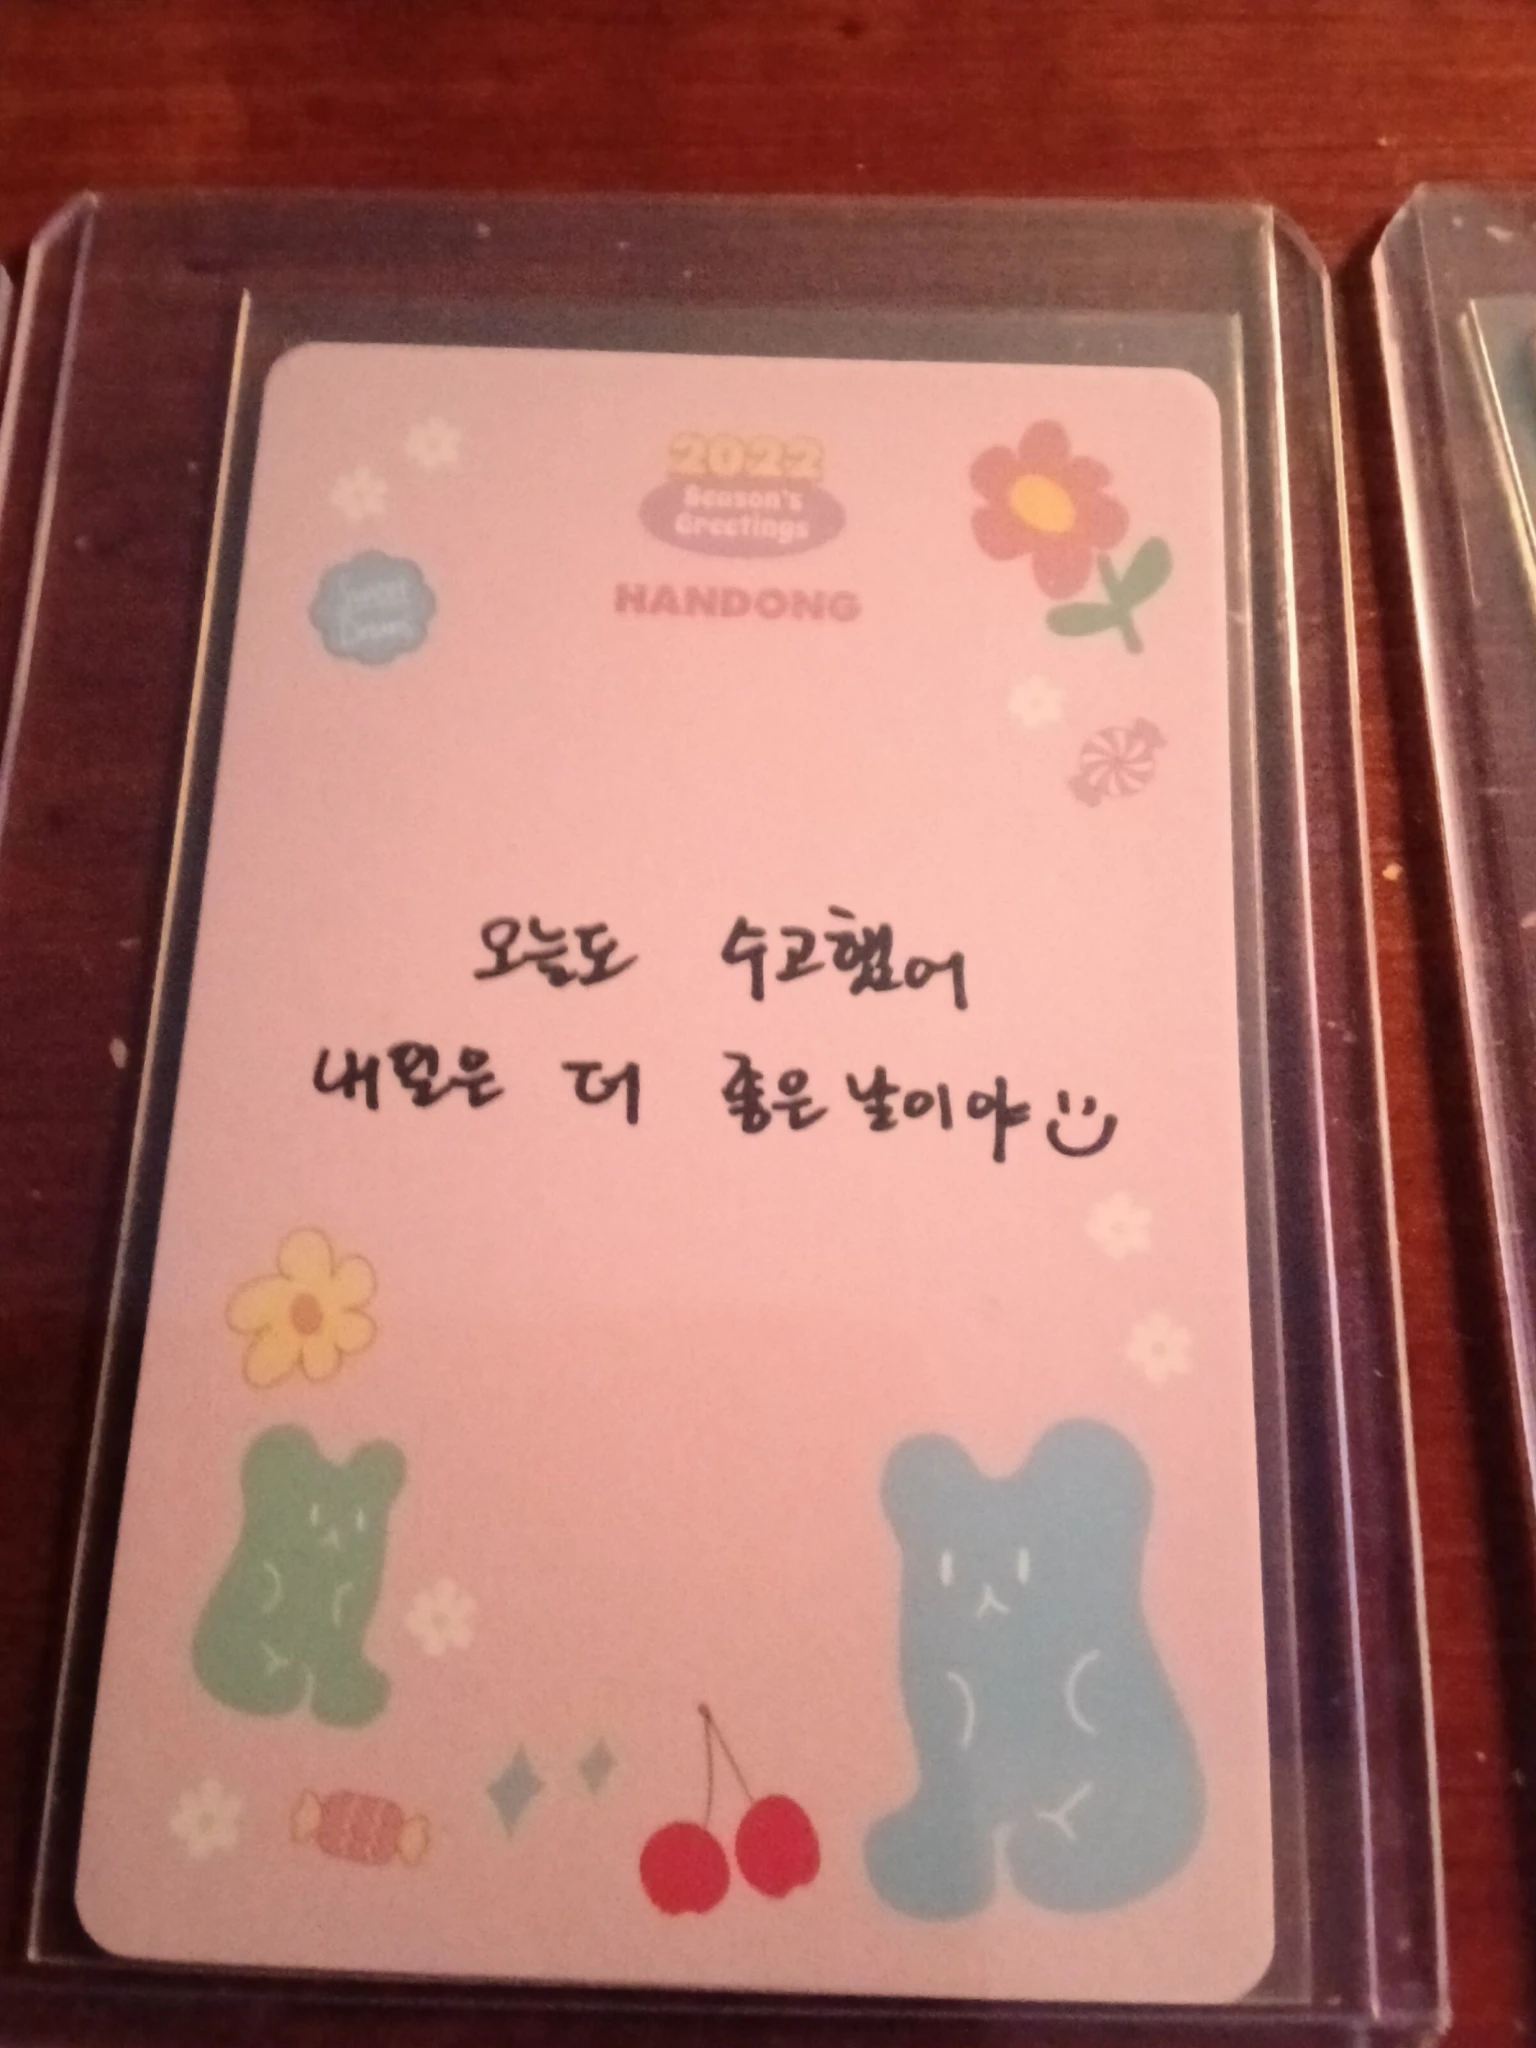 2022
Season's
Greetings
HANDONG
Sweet
Dream
오늘도 수고했어
내일은 더 좋은 날이야